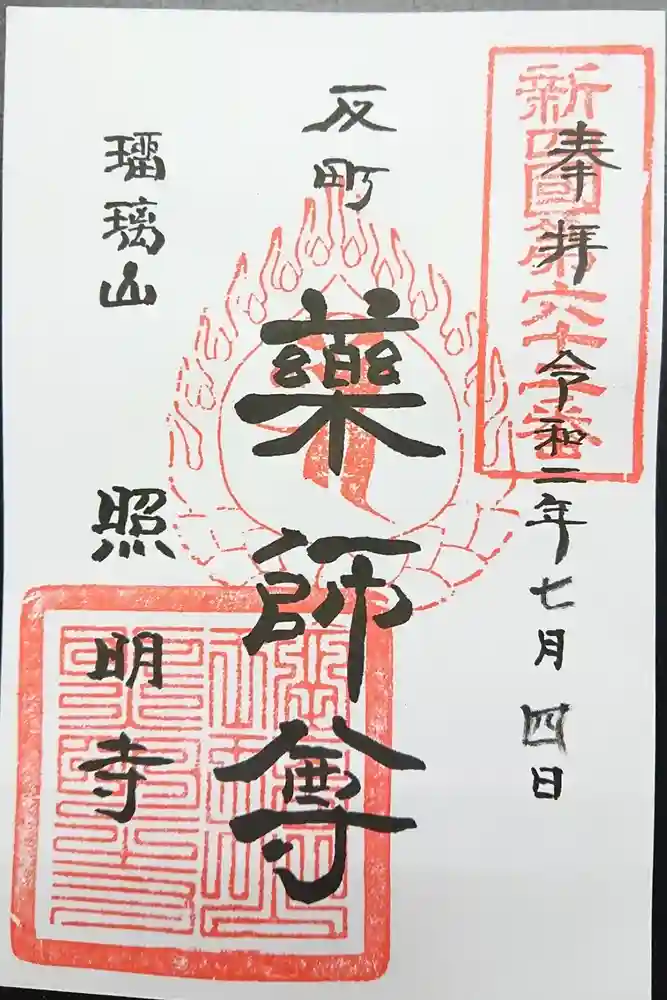 奉拝 令和二年七月四日
新四国第六十二番
反町
藥師尊
瑠璃山 照明寺